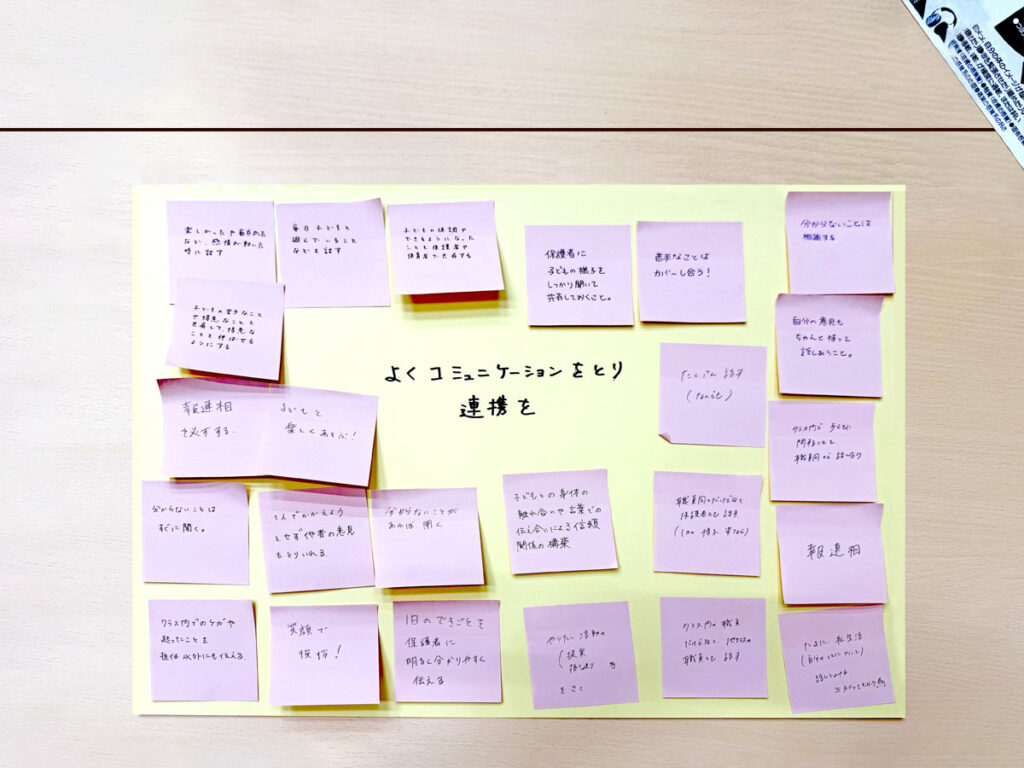 よくコミュニケーションをとり
連携を
楽しかったや面白かった
など、感情が動いた
時に話す
毎日子どもと
遊んでいること
などを話す
子どもの体調や
できるようになった
ことを保護者や
保育者で共有する
保護者に
子どもの様子を
しっかり聞いて
共有しておくこと。
苦手なことは
カバーし合う!
分からないことは
相談する
子どもの苦手なこと
や得意なことを
共有して、得意な
ことを伸ばせる
ようにする
自分の意見も
ちゃんと持って
話し合うこと。
報連相
を必ずする。
子どもと
楽しくあそぶ!
たくさん話す
(なんでも)
クラス内で
問題ことを
職員間で話し合う
分からないことは
すぐに聞く。
1人でかかえよう
とせず他者の意見
もとりいれる
分からないことが
あれば聞く
子どもとの身体の
触れ合いや言葉での
伝え合いによる信頼
関係の構築
職員同士だけでなく
保護者とも話す
報連相
クラス内でのケガや
起ったことを
担任以外にも伝える。
笑顔で
挨拶!
1日のできごとを
保護者に
明るく分かりやすく
伝える
やりたい活動の
提案
振り返り を
をきく
クラス内の職員
だけでなく他クラスの
職員とも話す
たまに、私生活
話してみる。